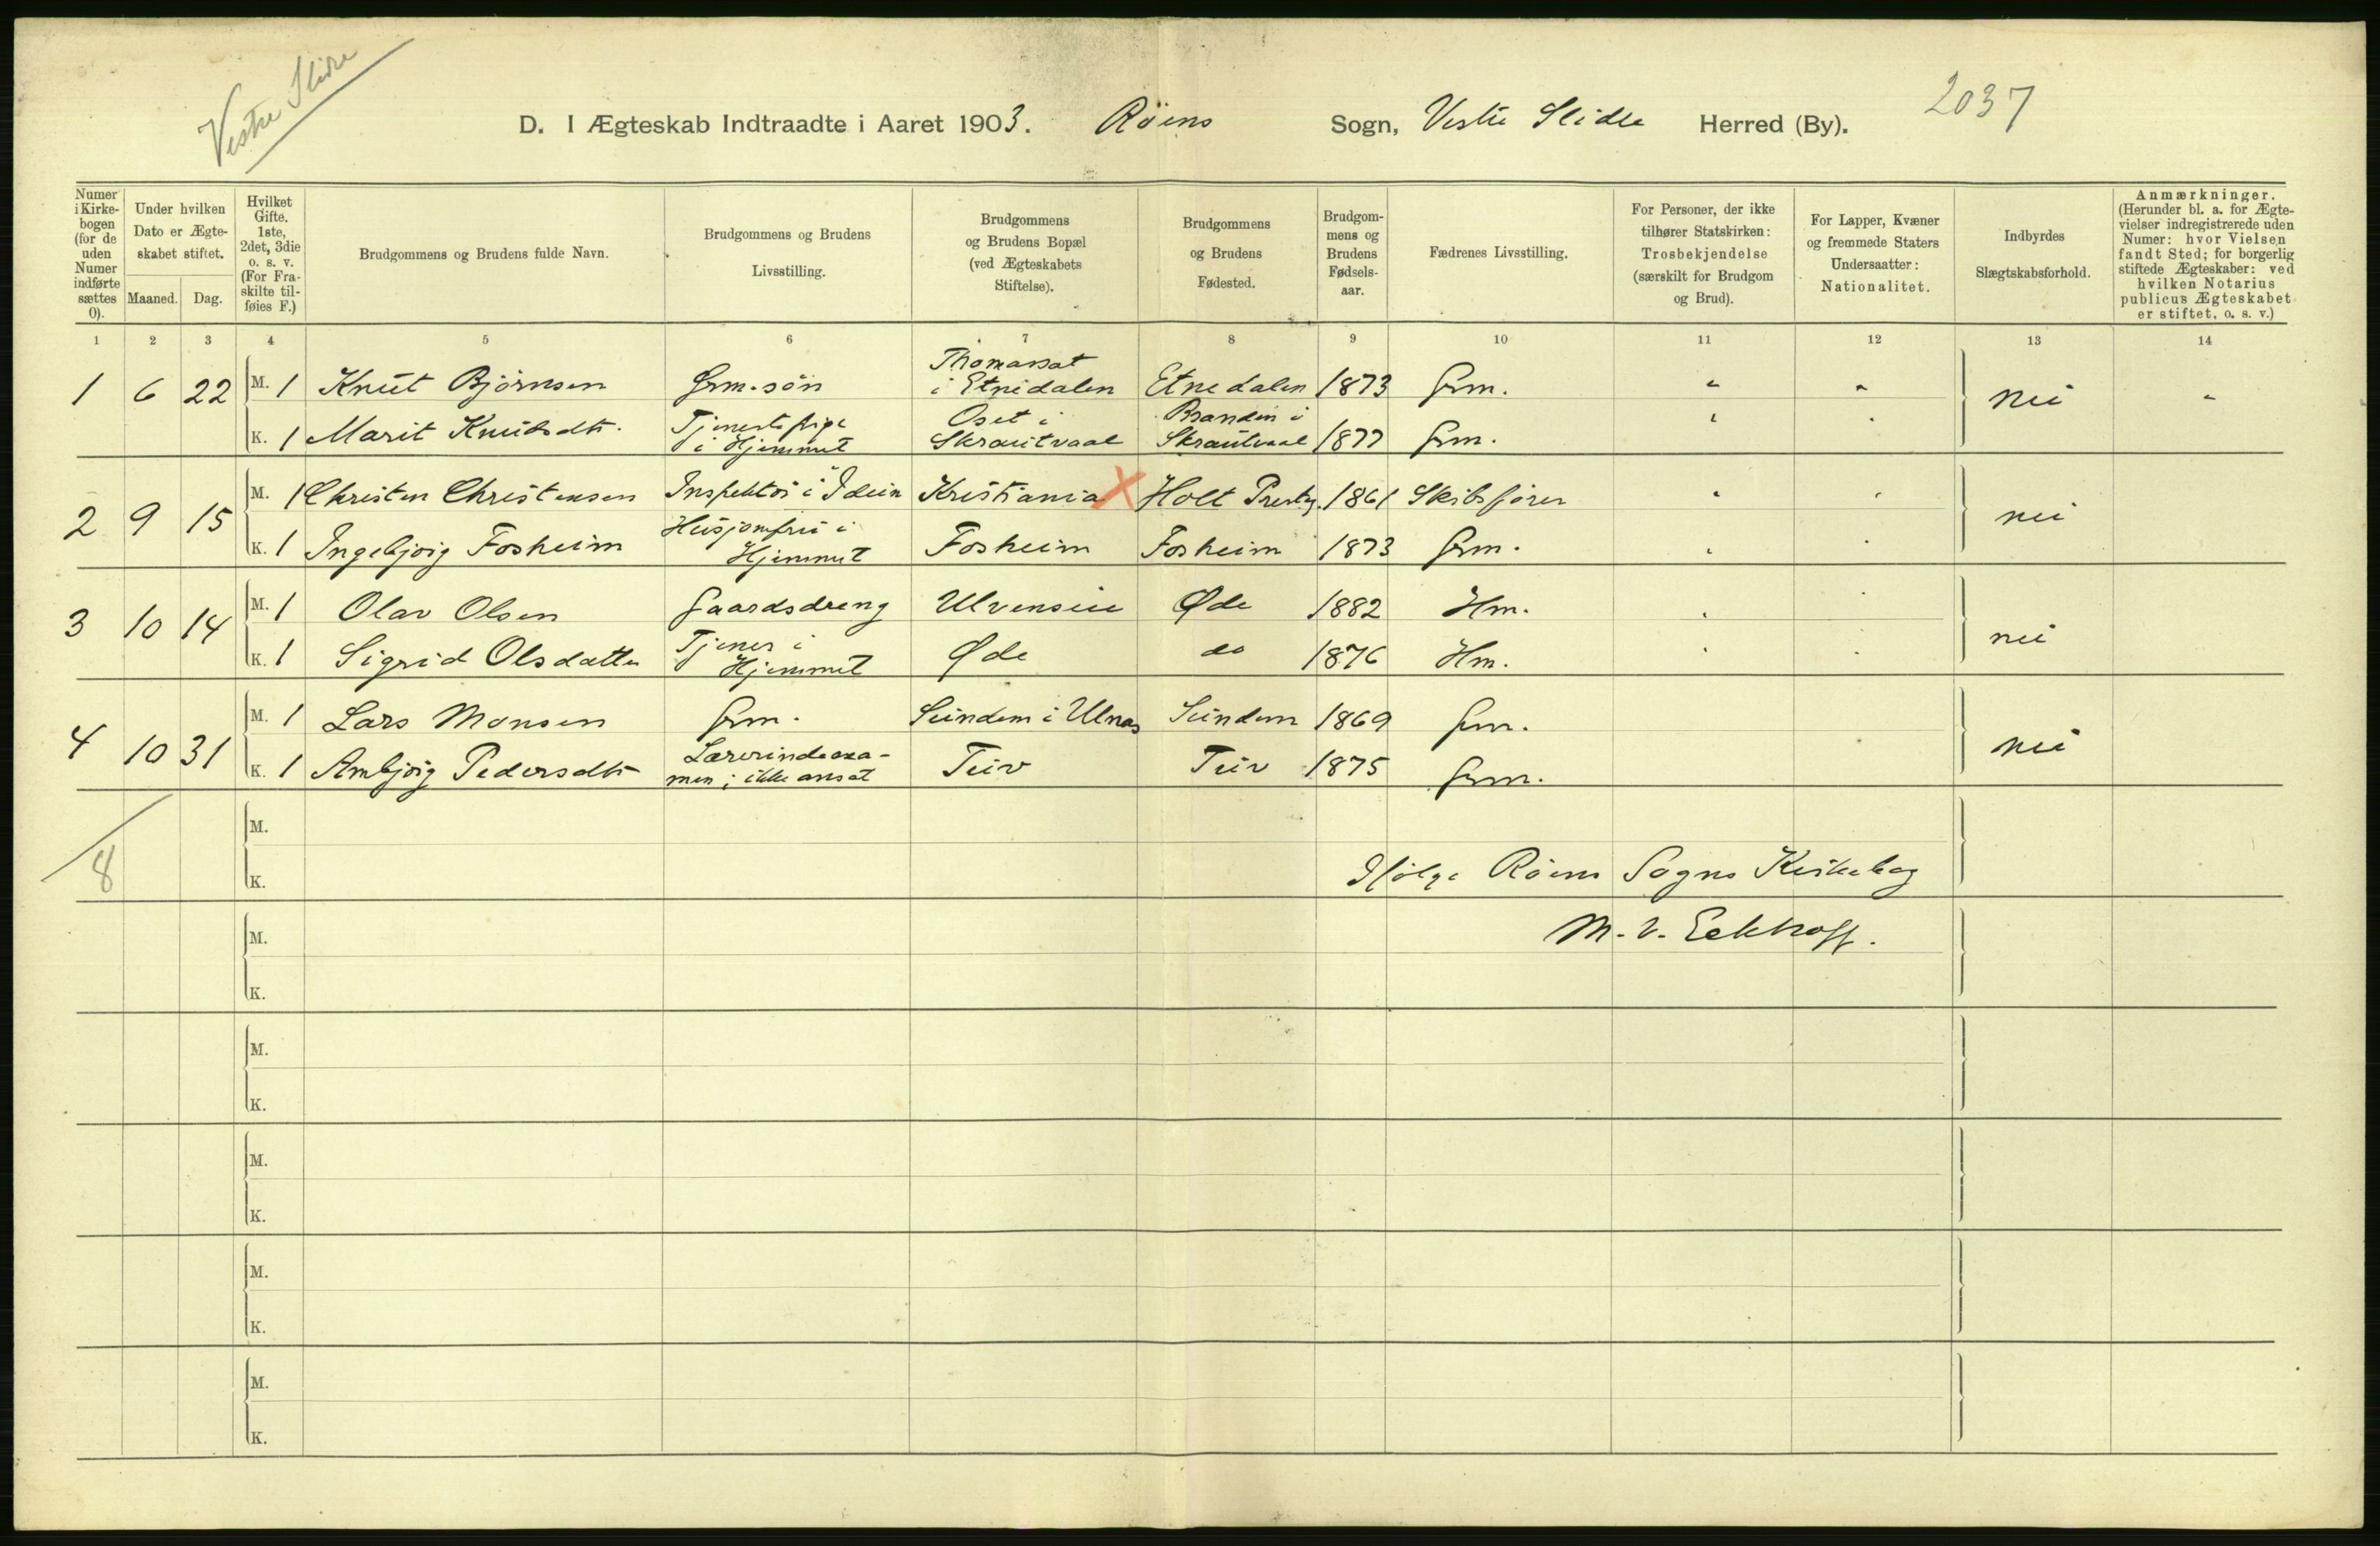 Vestre Slidre
D. I Ægteskab Indtraadte i Aaret 1903. Röens Sogn, Vestre Slidre Herred (By). 2037
Numer i Kirkebogen (for de uden Numer indførte sættes 0).
Under hvilken Dato er Ægteskabet stiftet.
Maaned. Dag.
Hvilket Gifte. 1ste, 2det, 3die o. s. v. (For Fraskilte tilføies F.)
Brudgommens og Brudens fulde Navn.
Brudgommens og Brudens Livsstilling.
Brudgommens og Brudens Bopæl (ved Ægteskabets Stiftelse).
Brudgommens og Brudens Fødested.
Brudgommens og Brudens Fødselsaar.
Fædrenes Livsstilling.
For Personer, der ikke tilhører Statskirken: Trosbekjendelse (særskilt for Brudgom og Brud).
For Lapper, Kvæner og fremmede Staters Undersaatter: Nationalitet.
Indbyrdes Slægtskabsforhold.
Anmærkninger. (Herunder bl. a. for Ægtevielser indregistrerede uden Numer: hvor Vielsen fandt Sted; for borgerlig stiftede Ægteskaber: ved hvilken Notarius publicus Ægteskabet er stiftet, o. s. v.)
1 2 3 4 5 6 7 8 9 10 11 12 13 14
1 6 22 M. 1 Knut Björnsen Grm.søn Thomasset i Etnedalen Etnedalen 1873 Grm. " " nei "
K. 1 Marit Knudsdtr. Tjenestepige i Hjemmet Oset i Skrautvaal Brandin i Skrautvaal 1877 Grm.
2 9 15 M. 1 Christen Christensen Inspektør i Kristiania X Holt Prestg. 1861 Skibsfører nei
K. 1 Ingebjørg Fosheim Husjomfru i Hjemmet Fosheim Fosheim 1873 Grm.
3 10 14 M. 1 Olav Olsen Gaardsdreng Ulvenseie Øde 1882 Hm. nei
K. 1 Sigrid Olsdatter Tjener i Hjemmet Øde do 1876 Hm.
4 10 31 M. 1 Lars Monsen Grm. Sundem i Ulnæs Sundem 1869 Grm. nei
K. 1 Ambjørg Pedersdtr Lærerindeexamen; ikke ansat Tuv Tuv 1875 Grm.
8
M.
K.
Ifølge Röens Sogns Kirkebog
M. V. Eckhoff.
M.
K.
M.
K.
M.
K.
M.
K.
M.
K.